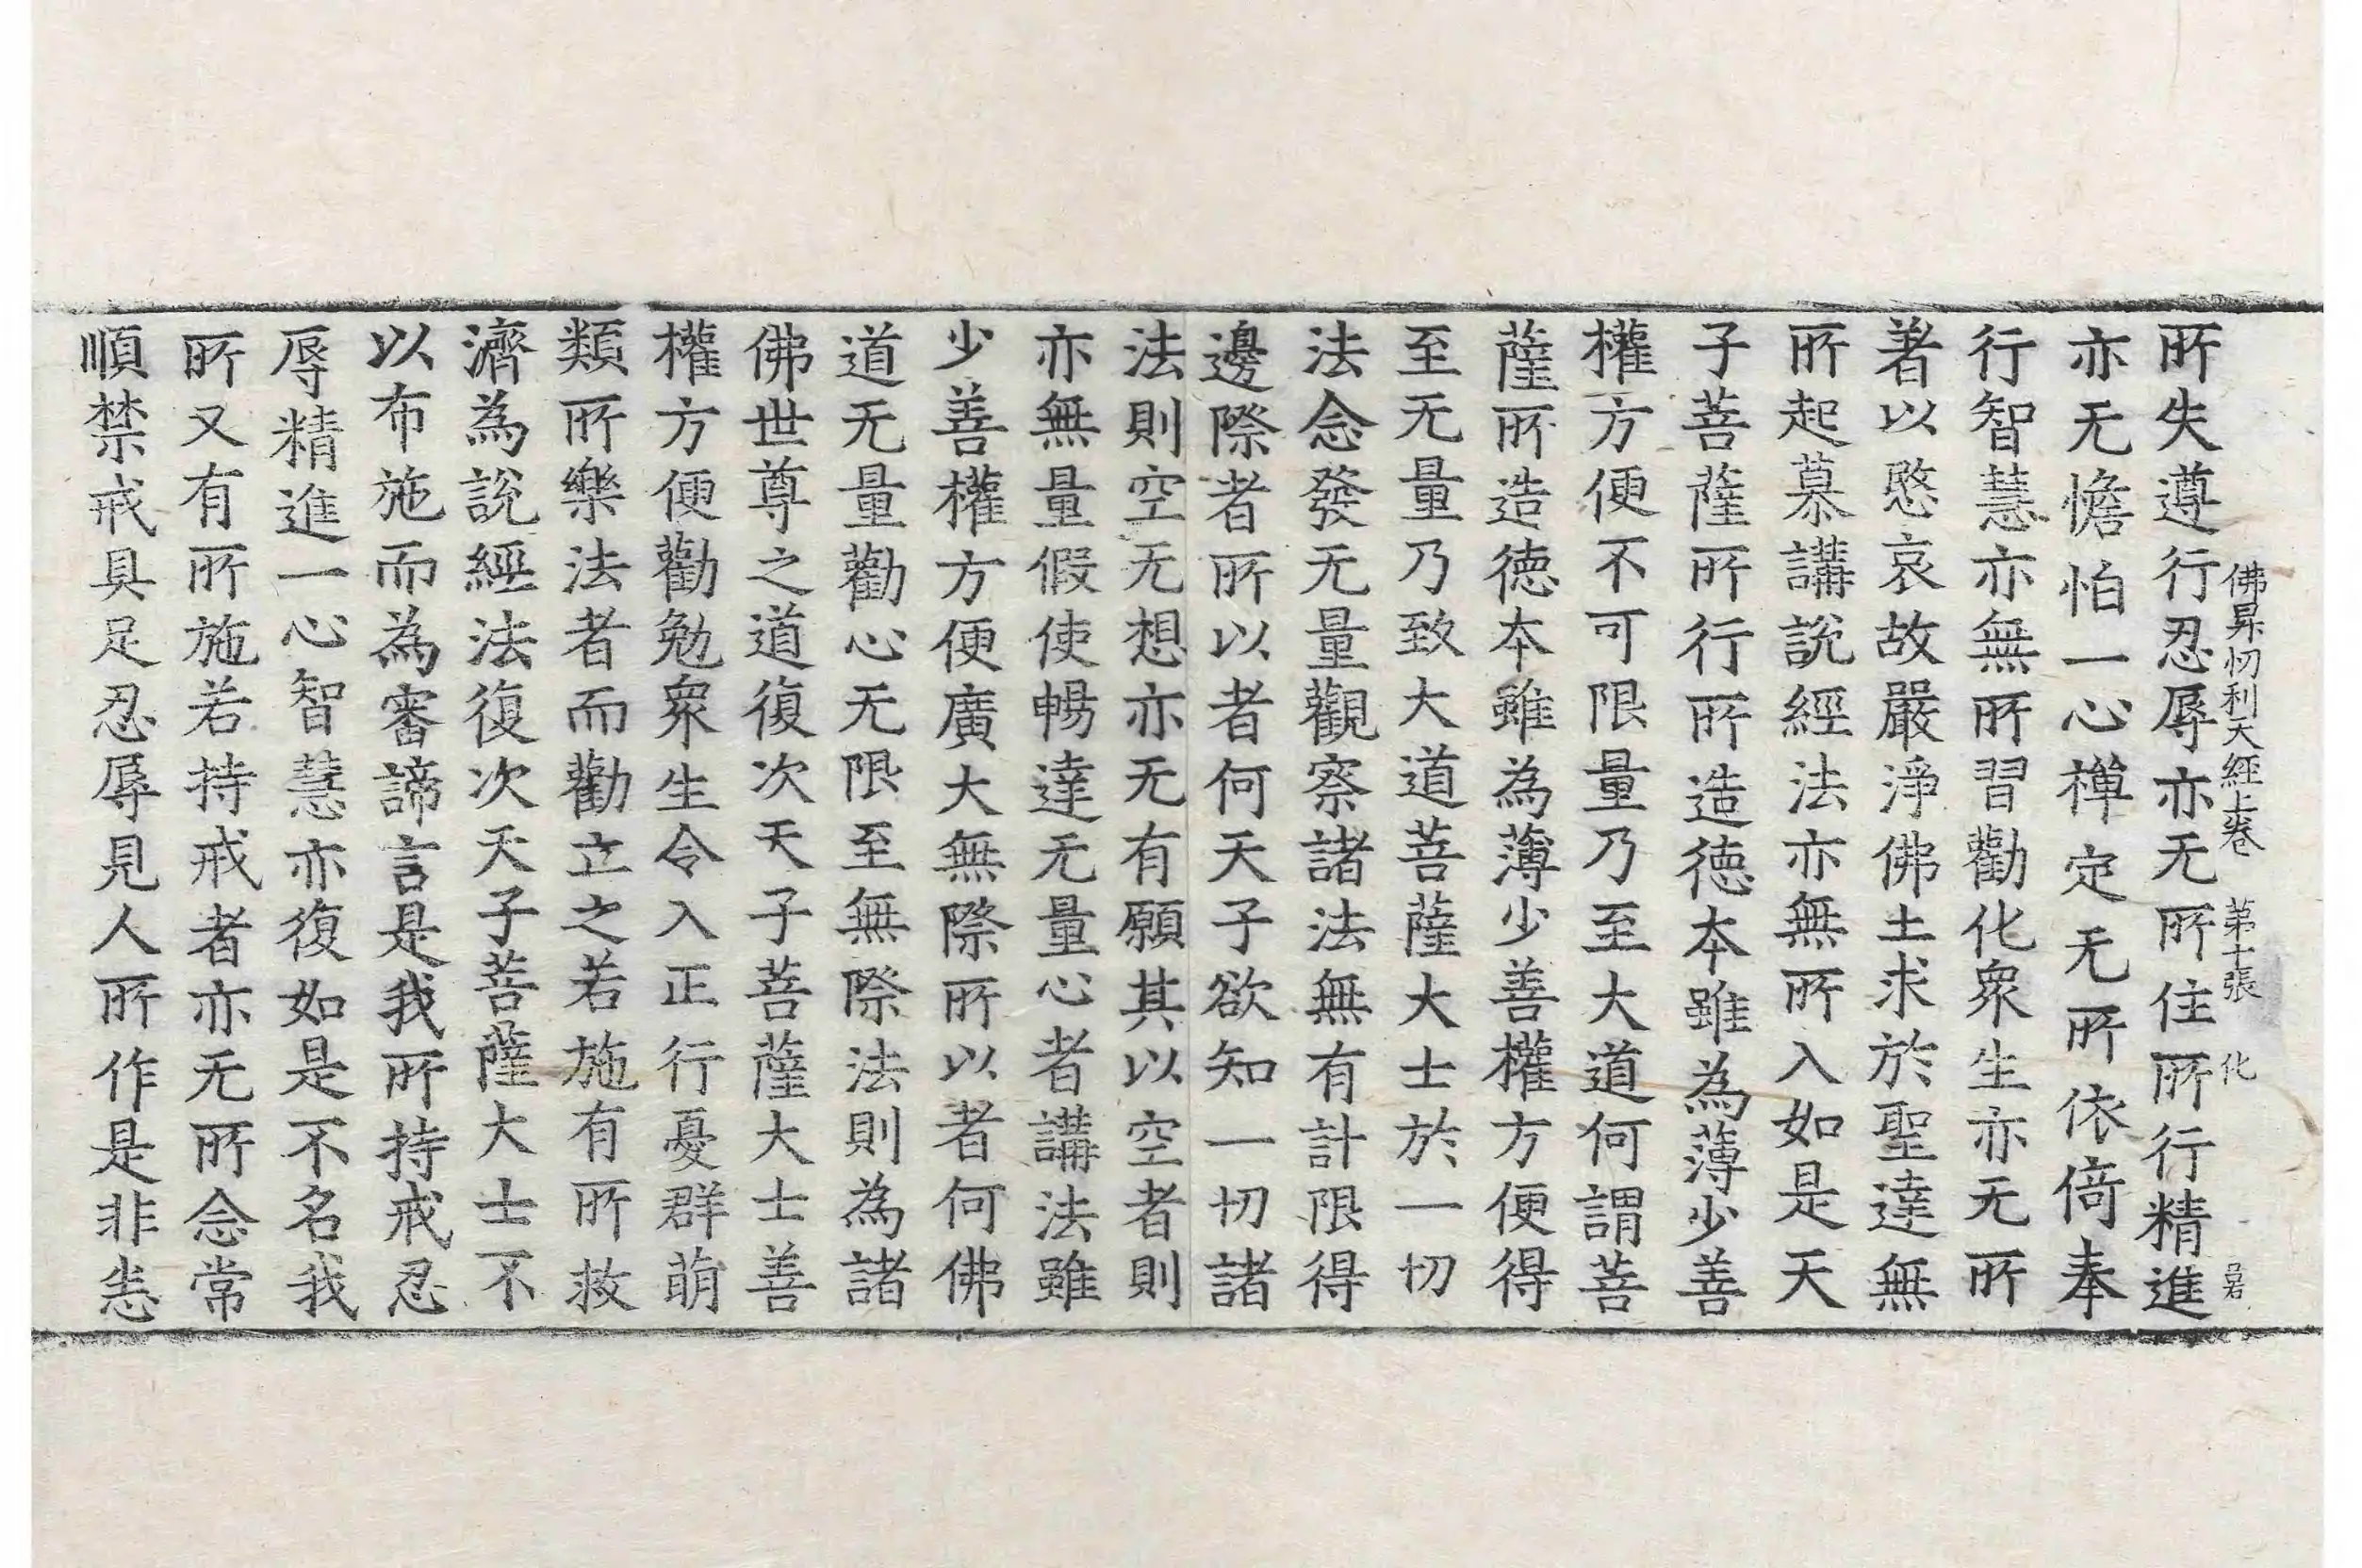 佛昇忉利天經上卷 第十張 化
所失遵行忍辱亦无所住所行精進
亦无憺怕一心禪定无所依倚奉
行智慧亦無所習勸化衆生亦无所
著以愍哀故嚴淨佛土求於聖達無
所起慕講說經法亦無所入如是天
子菩薩所行所造德本雖為薄少善
權方便不可限量乃至大道何謂菩
薩所造德本雖為薄少善權方便得
至无量乃致大道菩薩大士於一切
法念發无量觀察諸法無有計限得
邊際者所以者何天子欲知一切諸
法則空无想亦无有願其以空者則
亦無量假使暢達无量心者講法雖
少善權方便廣大無際所以者何佛
道无量勸心无限至無際法則為諸
佛世尊之道復次天子菩薩大士善
權方便勸勉衆生令入正行憂群萌
類所樂法者而勸立之若施有所救
濟為說經法復次天子菩薩大士不
以布施而為審諦言是我所持戒忍
辱精進一心智慧亦復如是不名我
所又有所施若持戒者亦无所念常
順禁戒具足忍辱見人所作是非恙